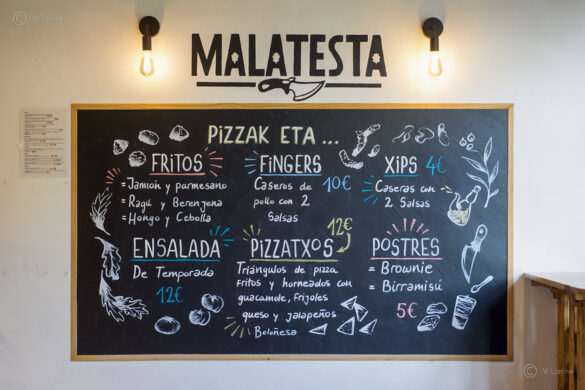 © V. Llacine
MALATESTA
PiZZAK ETA ...
FRITOS
= Jamón y parmesano
= Ragú y Berenjena
= Hongo y Cebolla
FiNGERS
Caseros de
pollo con 2
Salsas
10€
XiPS 4€
Caseras con
2 Salsas
ENSALADA
De Temporada
12€
PiZZATXOS
12€
Triángulos de pizza
fritos y horneados con
guacamole, frijoles
queso y jalapeños
Boloñesa
POSTRES
= Brownie
= Birramisú
5€
© V. Llacine